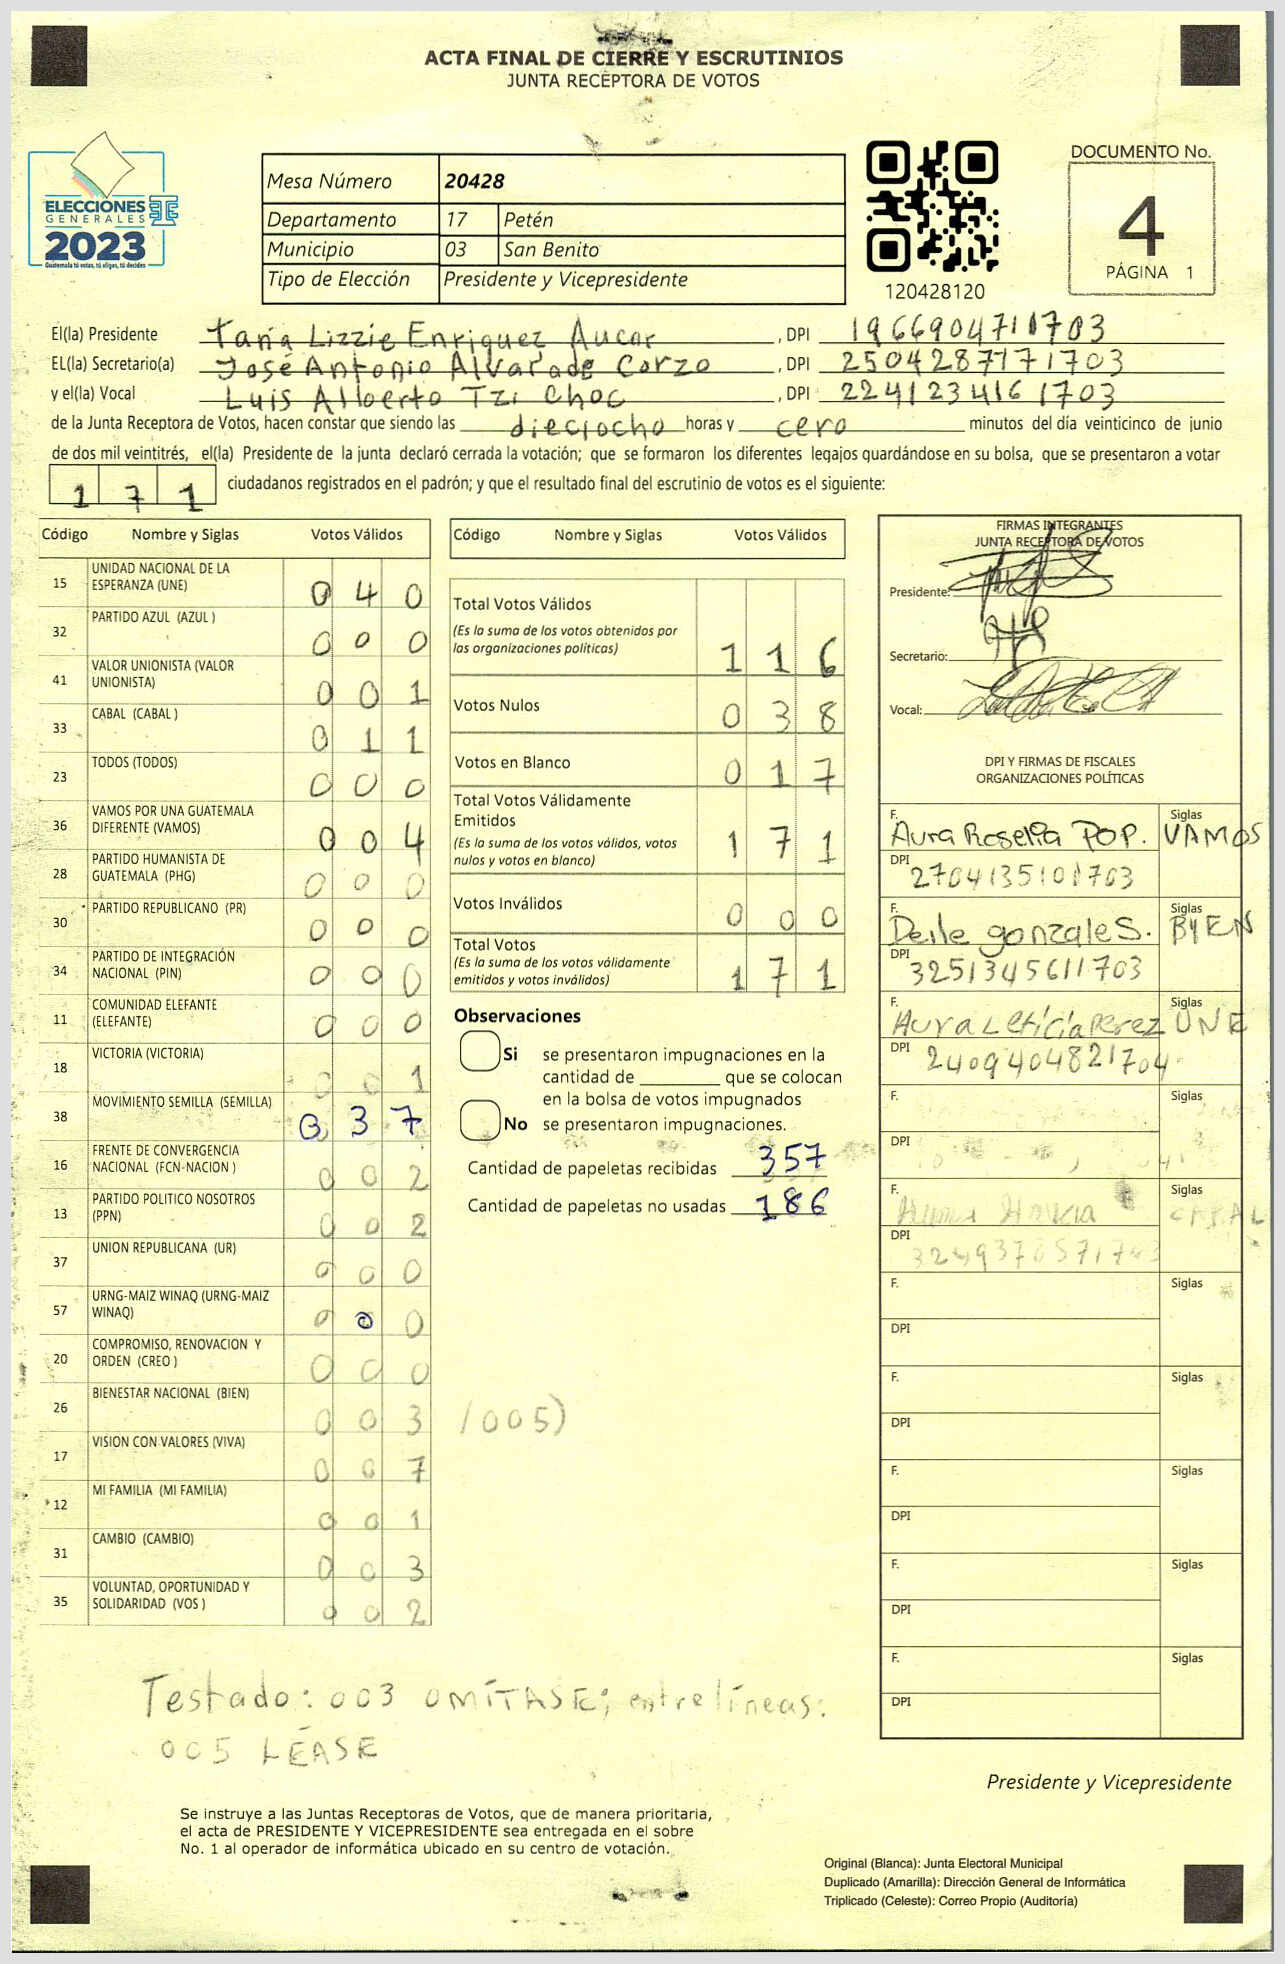 ACTA FINAL DE CIERRE Y ESCRUTINIOS
JUNTA RECEPTORA DE VOTOS
ELECCIONES
GENERALES
2023
Guatemala tú votas, tú eliges, tú decides
Mesa Número 20428
Departamento 17 Petén
Municipio 03 San Benito
Tipo de Elección Presidente y Vicepresidente
120428120
DOCUMENTO No.
4
PÁGINA 1
El(la) Presidente Tania Lizzie Enriquez Aucar, DPI 1966904711703
EL(la) Secretario(a) José Antonio Alvarado Corzo, DPI 2504287171703
y el(la) Vocal Luis Alberto Tzi Choc, DPI 2241234161703
de la Junta Receptora de Votos, hacen constar que siendo las dieciocho horas y cero minutos del día veinticinco de junio
de dos mil veintitrés, el(la) Presidente de la junta declaró cerrada la votación; que se formaron los diferentes legajos quardándose en su bolsa, que se presentaron a votar
171 ciudadanos registrados en el padrón; y que el resultado final del escrutinio de votos es el siguiente:
Código Nombre y Siglas Votos Válidos
15 UNIDAD NACIONAL DE LA ESPERANZA (UNE) 0 4 0
32 PARTIDO AZUL (AZUL ) 0 0 0
41 VALOR UNIONISTA (VALOR UNIONISTA) 0 0 1
33 CABAL (CABAL ) 0 1 1
23 TODOS (TODOS) 0 0 0
36 VAMOS POR UNA GUATEMALA DIFERENTE (VAMOS) 0 0 4
28 PARTIDO HUMANISTA DE GUATEMALA (PHG) 0 0 0
30 PARTIDO REPUBLICANO (PR) 0 0 0
34 PARTIDO DE INTEGRACIÓN NACIONAL (PIN) 0 0 0
11 COMUNIDAD ELEFANTE (ELEFANTE) 0 0 0
18 VICTORIA (VICTORIA) 0 0 1
38 MOVIMIENTO SEMILLA (SEMILLA) 0 3 7
16 FRENTE DE CONVERGENCIA NACIONAL (FCN-NACION ) 0 0 2
13 PARTIDO POLITICO NOSOTROS (PPN) 0 0 2
37 UNION REPUBLICANA (UR) 0 0 0
57 URNG-MAIZ WINAQ (URNG-MAIZ WINAQ) 0 0 0
20 COMPROMISO, RENOVACION Y ORDEN (CREO ) 0 0 0
26 BIENESTAR NACIONAL (BIEN) 0 0 3 /005)
17 VISION CON VALORES (VIVA) 0 0 7
12 MI FAMILIA (MI FAMILIA) 0 0 1
31 CAMBIO (CAMBIO) 0 0 3
35 VOLUNTAD, OPORTUNIDAD Y SOLIDARIDAD (VOS ) 0 0 2
Código Nombre y Siglas Votos Válidos
Total Votos Válidos 1 1 6
(Es la suma de los votos obtenidos por
las organizaciones políticas)
Votos Nulos 0 3 8
Votos en Blanco 0 1 7
Total Votos Válidamente
Emitidos 1 7 1
(Es la suma de los votos válidos, votos
nulos y votos en blanco)
Votos Inválidos 0 0 0
Total Votos 1 7 1
(Es la suma de los votos válidamente
emitidos y votos inválidos)
Observaciones
Si se presentaron impugnaciones en la
cantidad de ________ que se colocan
en la bolsa de votos impugnados
No se presentaron impugnaciones.
Cantidad de papeletas recibidas 357
Cantidad de papeletas no usadas 186
FIRMAS INTEGRANTES
JUNTA RECEPTORA DE VOTOS
Presidente:
Secretario:
Vocal:
DPI Y FIRMAS DE FISCALES
ORGANIZACIONES POLÍTICAS
F. Aura Roselia POP. Siglas VAMOS
DPI 2704135101703
F. Deile gonzales. Siglas BIEN
DPI 3251345611703
F. Aura Leticia Perez Siglas UNE
DPI 2409404821704
F. Siglas
DPI
F. Siglas CABAL
DPI
F. Siglas
DPI
F. Siglas
DPI
F. Siglas
DPI
F. Siglas
DPI
F. Siglas
DPI
Testado: 003 OMÍTASE; entre líneas:
005 LÉASE
Presidente y Vicepresidente
Se instruye a las Juntas Receptoras de Votos, que de manera prioritaria,
el acta de PRESIDENTE Y VICEPRESIDENTE sea entregada en el sobre
No. 1 al operador de informática ubicado en su centro de votación.
Original (Blanca): Junta Electoral Municipal
Duplicado (Amarilla): Dirección General de Informática
Triplicado (Celeste): Correo Propio (Auditoría)